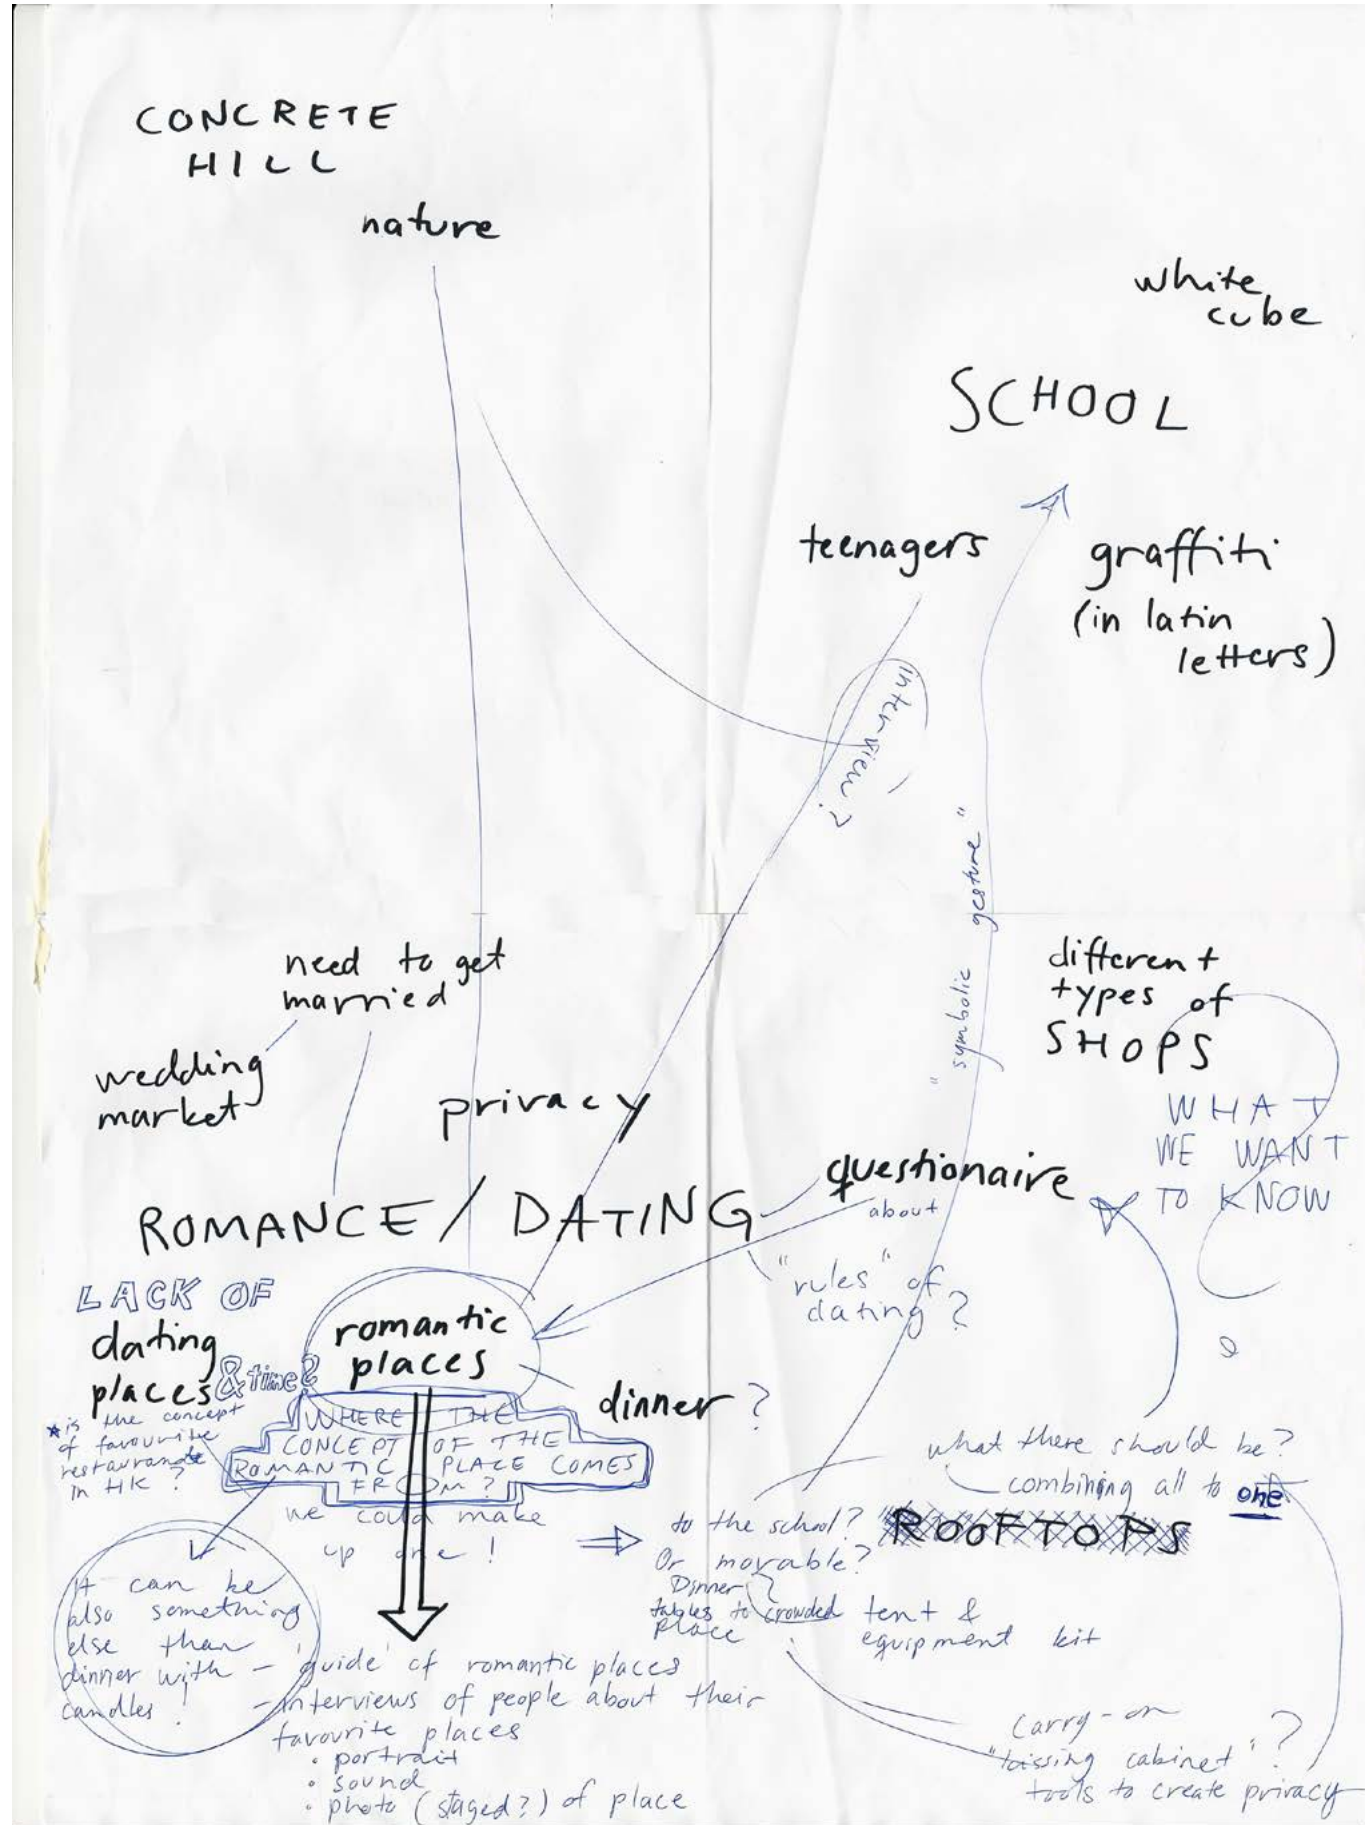 CONCRETE
HILL
nature
white
cube
SCHOOL
teenagers
graffiti
(in latin
letters)
interview?
"symbolic gesture"
need to get
married
wedding
market
privacy
different
types of
SHOPS
WHAT
WE WANT
TO KNOW
questionaire
about
ROMANCE / DATING
"rules" of
dating?
LACK OF
dating
places & time?
romantic
places
dinner?
*is the concept
of favourite
restaurant
in HK?
WHERE THE
CONCEPT OF THE
ROMANTIC PLACE COMES
FROM?
we could make
up one!
what there should be?
combining all to one
ROOFTOPS
to the school?
Or movable?
Dinner
tables to crowded
place
tent &
equipment kit
It can be
also something
else than
dinner with
candles!
- 'guide' of romantic places
- interviews of people about their
favourite places
• portrait
• sound
• photo (staged?) of place
carry-on
"kissing cabinet"?
tools to create privacy